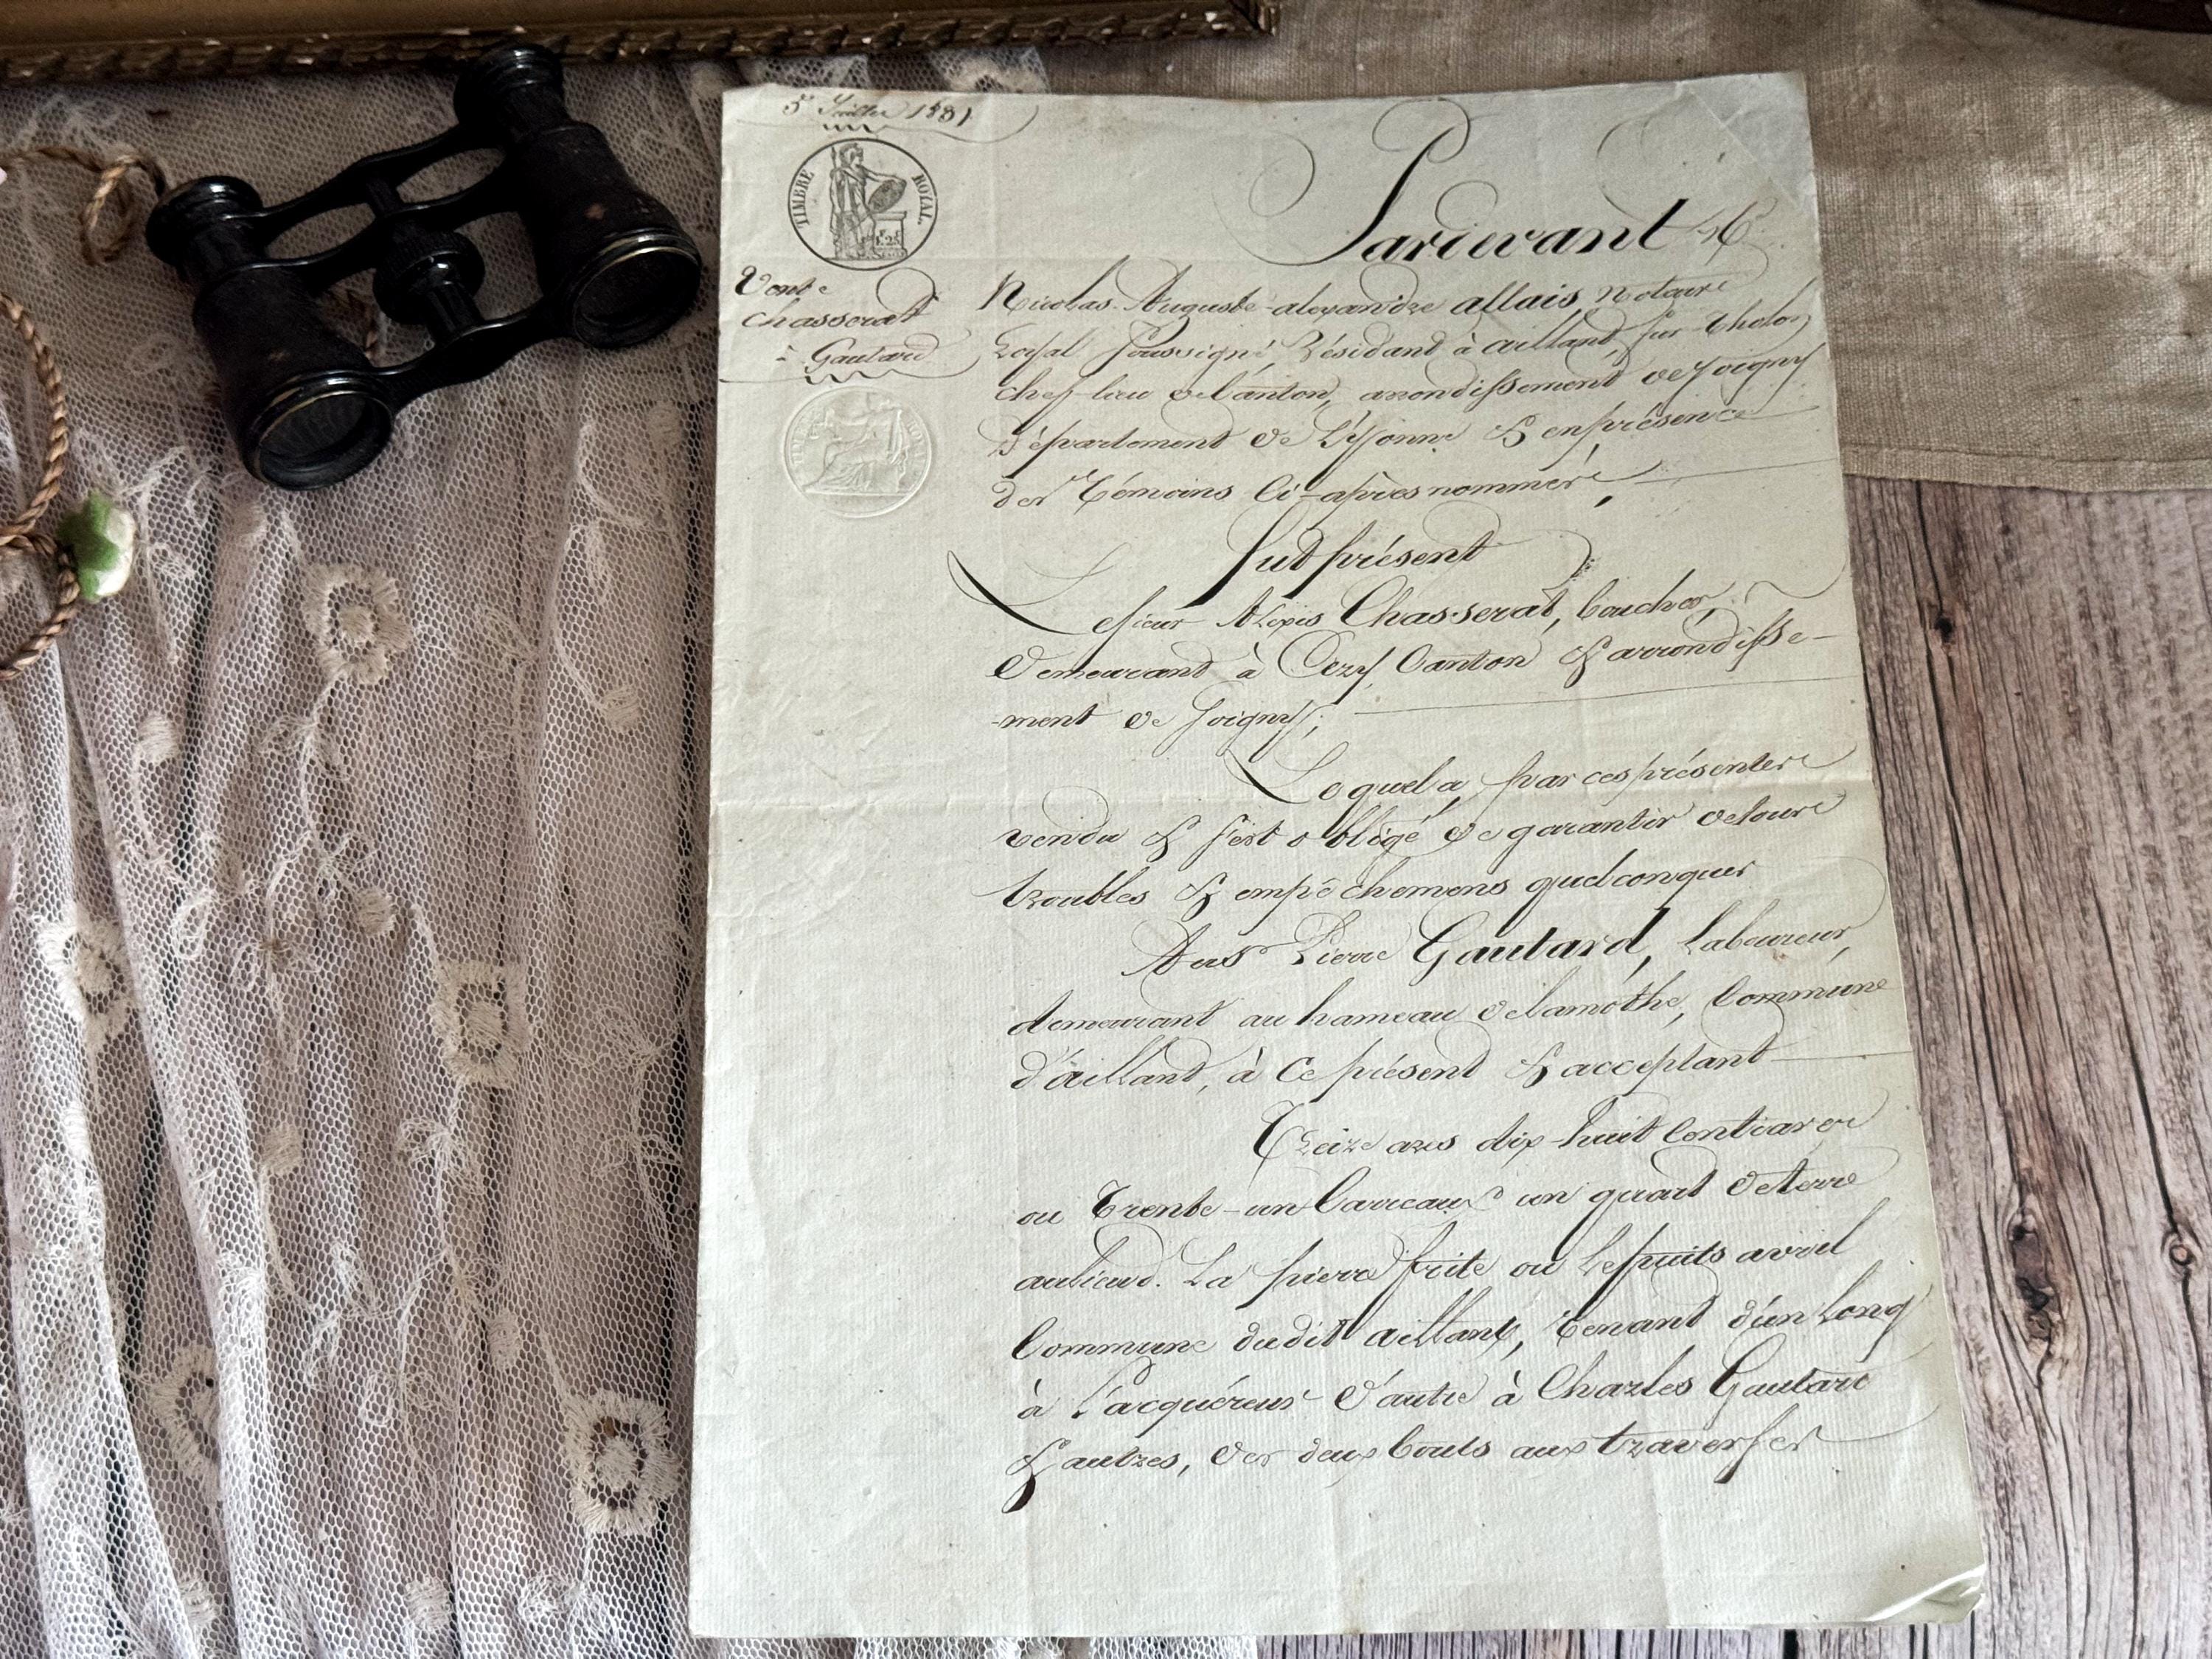 5 Juillet 1831
TIMBRE ROYAL
1F.25C
Vente
Chasserat
à Gautard
Pardevant Me
Nicolas-Auguste-alexandre allais, Notaire
Royal Soussigné, Résidant à aillant, sur-tholon
chef-lieu de Canton, arrondissement de Joigny
Département de L'Yonne & en présence
des Témoins Ci-après nommés,
Fut présent
Le sieur Alexis Chasserat, boucher,
Demeurant à Cezy, Canton & arrondisse-
-ment de Joigny;
Lequel a, par ces présentes
vendu & s'est obligé de garantir de tous
troubles & empêchemens quelconques
Au Sr Pierre Gautard, Laboureur,
demeurant au hameau de lamothe, Commune
d'aillant, à Ce présent & acceptant
Treize ares dix-huit Centiares
ou Trente-un Carreaux un quart de terre
au lieud. La pierre frite ou Le puits avril
Commune dudit aillant, tenant d'un Long
à L'acquéreur d'autre à Charles Gautard
& autres, des deux bouts aux traverses